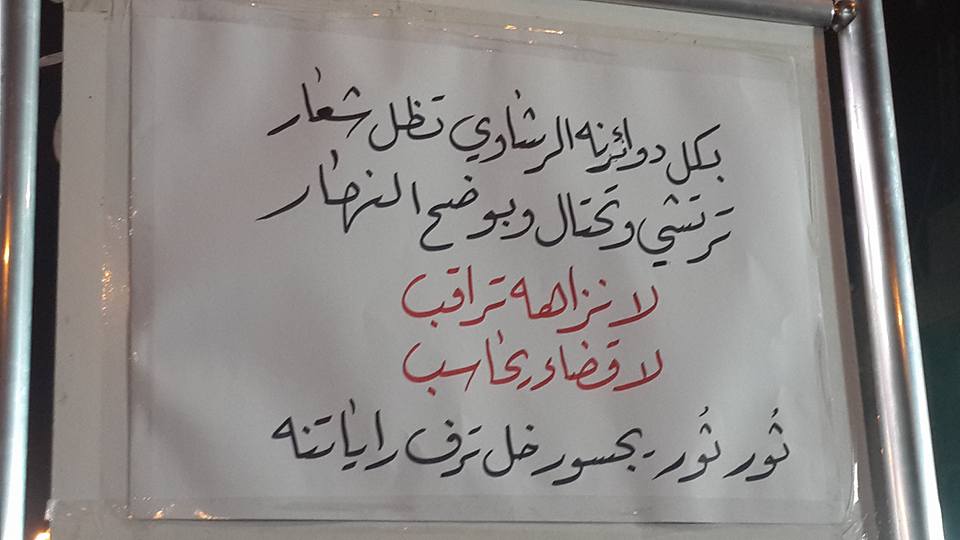 بكل دوائرنه الرشاوي تظل شعار
ترتشي وتحتال وبوضح النهار
لا نزاهه تراقب
لا قضاء يحاسب
ثُور ثُور يجسور خل ترف راياتنه